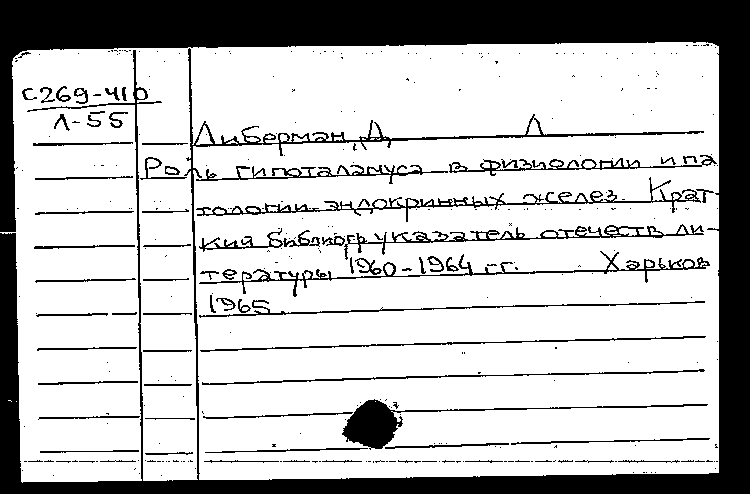 С269-410
Л-55
Либерман, Д. Л
Роль гипоталамуса в физиологии и па
тологии эндокринных желез. Крат-
кий библиогр указатель отечеств ли-
тературы 1960-1964 гг. Харьков
1965.